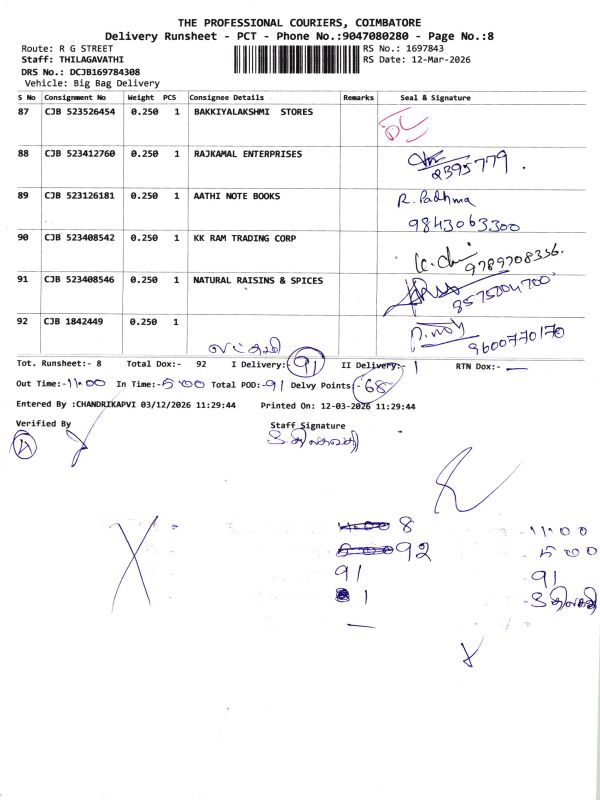 THE PROFESSIONAL COURIERS, COIMBATORE
Delivery Runsheet - PCT - Phone No.:9047080280 - Page No.:8
Route: R G STREET RS No.: 1697843
Staff: THILAGAVATHI RS Date: 12-Mar-2026
DRS No.: DCJB169784308
Vehicle: Big Bag Delivery
S No Consignment No Weight PCS Consignee Details Remarks Seal & Signature
87 CJB 523526454 0.250 1 BAKKIYALAKSHMI STORES
88 CJB 523412760 0.250 1 RAJKAMAL ENTERPRISES
2395779.
89 CJB 523126181 0.250 1 AATHI NOTE BOOKS R. Padhma
9843063300
90 CJB 523408542 0.250 1 KK RAM TRADING CORP
9789708356.
91 CJB 523408546 0.250 1 NATURAL RAISINS & SPICES
8575004700
92 CJB 1842449 0.250 1
9600770170
Tot. Runsheet:- 8 Total Dox:- 92 I Delivery:- 91 II Delivery:- 1 RTN Dox:- —
Out Time:-11.00 In Time:-5.00 Total POD:-91 Delvy Points:-68
Entered By :CHANDRIKAPVI 03/12/2026 11:29:44 Printed On: 12-03-2026 11:29:44
Verified By Staff Signature
A
8 -11.00
92 -5.00
91 -91
1
—